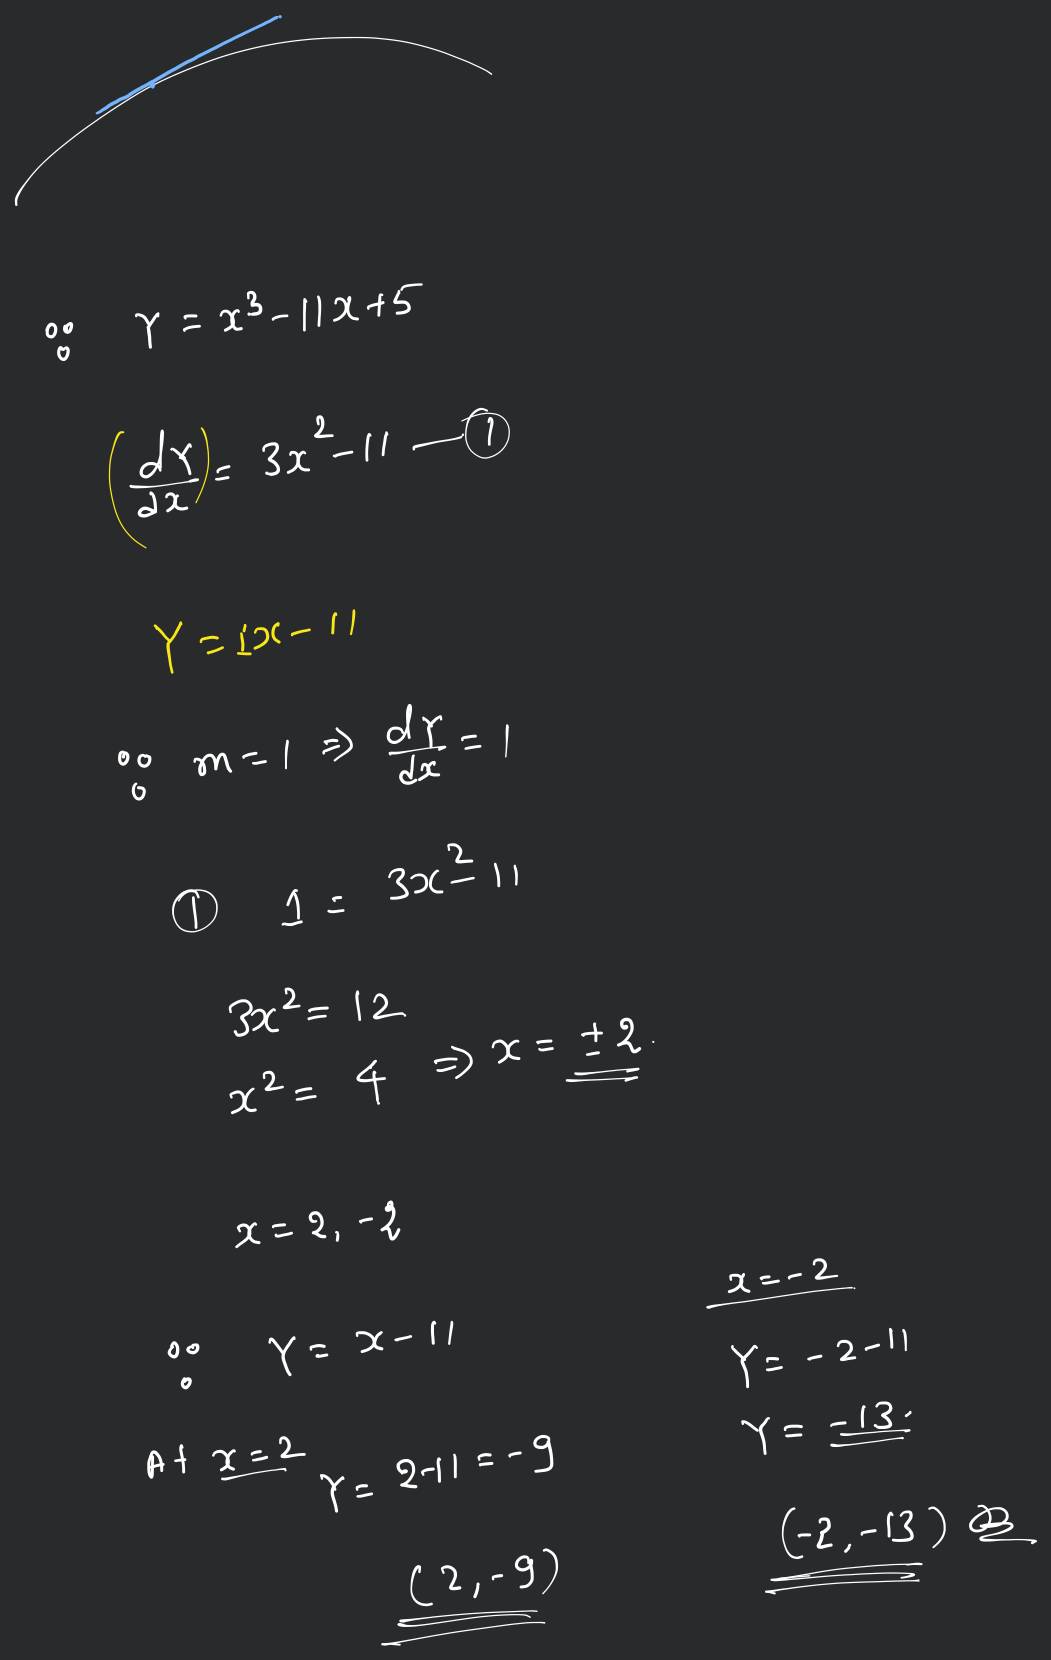 ∵ Y = x³ - 11x + 5
(dY/dx) = 3x² - 11 — ①
Y = 1x - 11
∵ m = 1 ⇒ dY/dx = 1
① 1 = 3x² - 11
3x² = 12
x² = 4 ⇒ x = ±2
x = 2, -2
∵ Y = x - 11
At x = 2 Y = 2-11 = -9
(2, -9)
x = -2
Y = -2-11
Y = -13
(-2, -13)